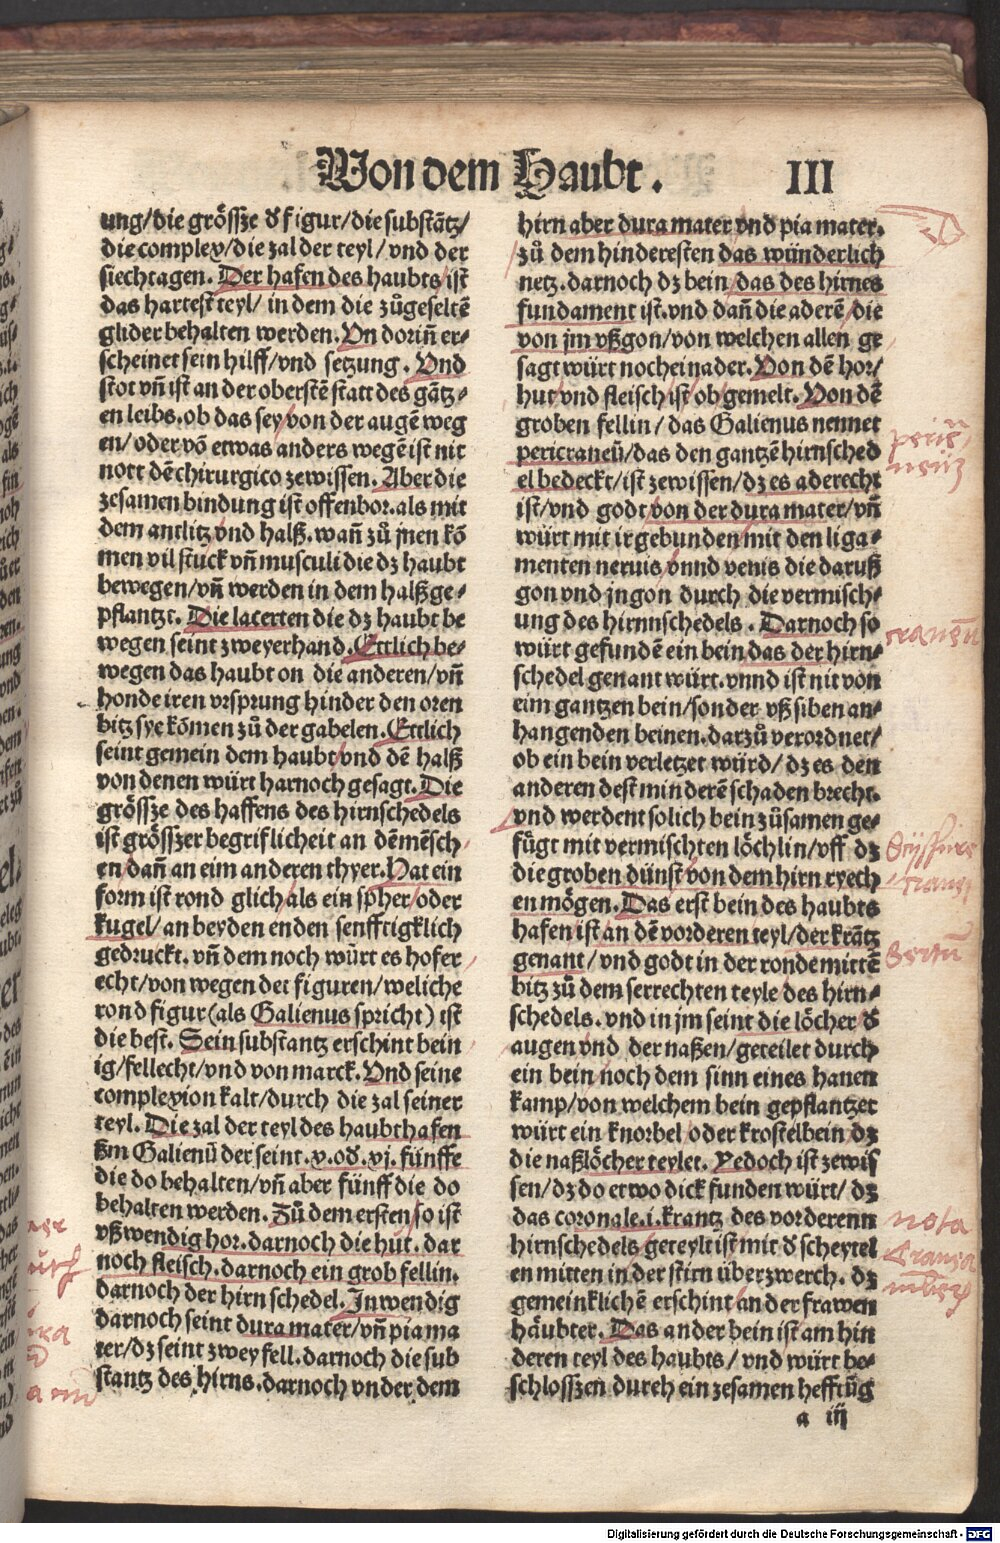 Von dem Haubt. III
ung/die grössze d̕ figur/die substātz/
die complex/die zal der teyl/vnd der
siechtagen. Der hafen des haubts/ist
das hartest teyl/in dem die zůgeseltē
glider behalten werden. Vn dorin̄ er⸗
scheinet sein hilff/vnd setzung. Vnd
stot vn̄ ist an der oberstē statt des gātz⸗
en leibs. ob das sey von der augē weg
en/oder vō etwas anders wegē ist nit
nott dē chirurgico ze wissen. Aber die
zesamen bindung ist offenbor. als mit
dem antlitz vnd halß. wan̄ zů jnen kō
men vil stuck vn̄ musculi die dz haubt
bewegen/vn̄ werden in dem halß ge⸗
pflantzt. Die lacerten die dz haubt be
wegen seint zweyerhand. Ettlich be⸗
wegen das haubt on die anderen/vn̄
honde iren vrsprung hinder den oren
bitz sye kōmen zů der gabelen. Ettlich
seint gemein dem haubt vnd dē halß
von denen würt harnoch gesagt. Die
grössze des haffens des hirnschedels
ist grösszer begriflicheit an dē mēsch
en/dan̄ an eim anderen thyer. Hat ein
form ist rond glich als ein spher/oder
kugel/an beyden enden senfftigklich
gedruckt. vn̄ dem noch würt es hofer
echt/von wegen der figuren/weliche
rond figur (als Galienus spricht) ist
die best. Sein substantz erschint bein
ig/fellecht/vnd von marck. Vnd seine
complexion kalt/durch die zal seiner
teyl. Die zal der teyl des haubthafen
ßm Galienū der seint. x. od̕. xj. fünffe
die do behalten/vn̄ aber fünff die do
behalten werden. Zů dem ersten so ist
vßwendig hor. darnoch die hut. dar
noch fleisch. darnoch ein grob fellin.
darnoch der hirn schedel. Inwendig
darnoch seint dura mater/vn̄ pia ma
ter/dz seint zwey fell. darnoch die sub
stantz des hirns. darnoch vnder dem
hirn aber dura mater vnd pia mater.
zů dem hinderesten das wünderlich
netz. darnoch dz bein/das des hirnes
fundament ist. vnd dan̄ die aderē/die
von jm vßgon/von welchen allen ge
sagt würt noch einader. Von dē hor/
hut vnd fleisch ist ob gemelt. Von dē
groben fellin/das Galienus nennet
pericraneū/das den gantzē hirnsched
el bedeckt/ist ze wissen/dz es aderecht
ist/vnd godt von der dura mater/vn̄
würt mit ir gebunden mit den liga⸗
menten neruis vnnd venis die daruß
gon vnd jngon durch die vermisch⸗
ung des hirnnschedels. Darnoch so
würt gefundē ein bein das der hirn⸗
schedel genant würt. vnnd ist nit von
eim gantzen bein/sonder vß siben an⸗
hangenden beinen. darzů verordnet/
ob ein bein verletzet würd/dz es den
anderen dest minderē schaden brecht.
vnd werdent solich bein zůsamen ge⸗
fügt mit vermischten löchlin/vff dz
die groben dünst von dem hirn ryech
en mögen. Das erst bein des haubts
hafen ist an dē vorderen teyl/der krātz
genant/vnd godt in der ronde mittē
bitz zů dem serrechten teyle des hirn⸗
schedels. vnd in jm seint die löcher d̕
augen vnd der naßen/geteilet durch
ein bein noch dem sinn eines hanen
kamp/von welchem bein gepflantzet
würt ein knorbel oder krostelbein dz
die naßlöcher teylet. Yedoch ist ze wis
sen/dz do etwo dick funden würt/dz
das coronale .i. krantz des vorderenn
hirnschedels geteylt ist mit d̕ scheytel
en mitten in der stirn überzwerch. dz
gemeinklichē erschint an der frawen
häubter. Das ander bein ist am hin
deren teyl des haubts/vnd würt be⸗
schlosszen durch ein zesamen hefftūg
a iij
nota